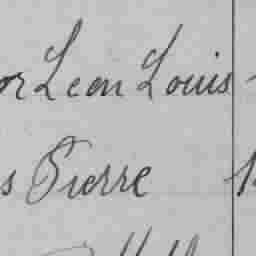 or Leon Louis
s Pierre